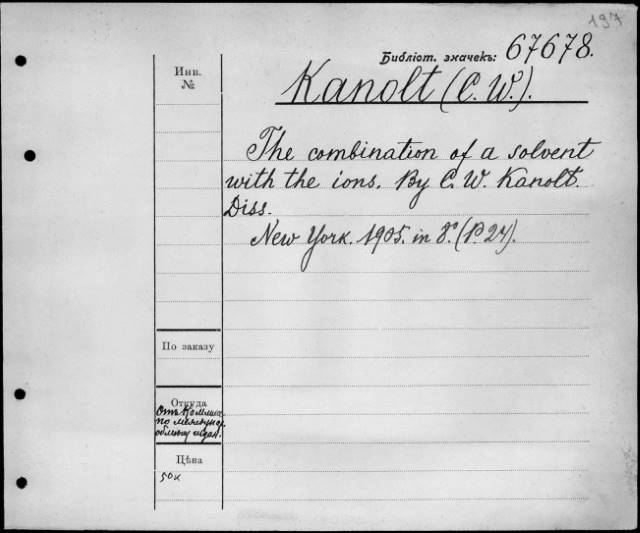 197
Библіот. значекъ: 67678.
Инв.
№
Kanolt (C. W.).
The combination of a solvent
with the ions. By C. W. Kanolt.
Diss.
New York. 1905. in 8°. (P. 24).
По заказу
Откуда
Отъ Коммис.
по междунар.
обмѣну издан.
Цѣна
50к